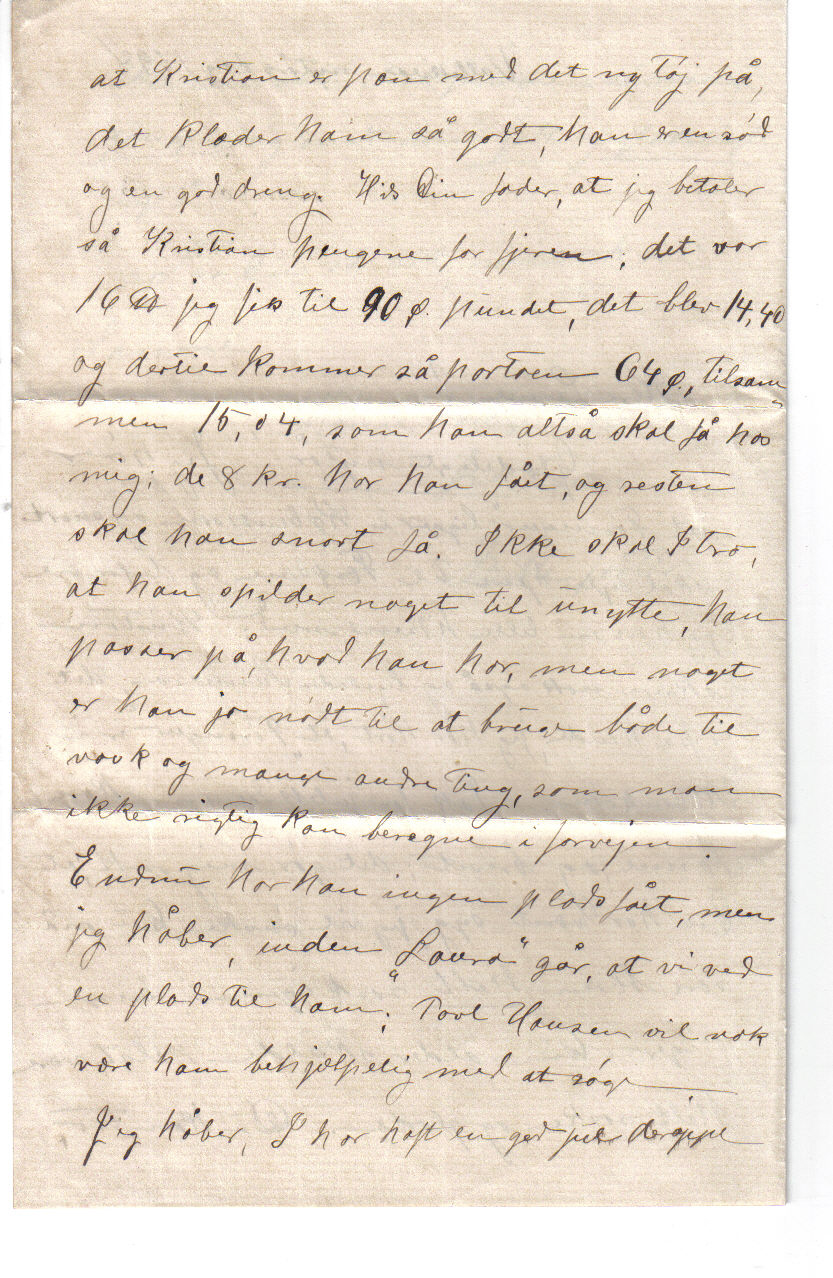 at Kristian er pæn med det ny tøj på,
det klæder ham så godt, han er en sød
og en god dreng. Hils Din fader, at jeg betaler
så Kristian pengene for fjeren, det var
16 jeg fik til 90 ø. pundet, det blev 14,40
og dertil kommer så portoen 64 ø., tilsam„
men 15,04, som han altså skal få hos
mig; de 8 kr. har han fået, og resten
skal han snart få. Ikke skal I tro,
at han spilder noget til unytte, han
passer på, hvad han har, men noget
er han jo nødt til at bruge både til
vask og mange andre ting, som man
ikke rigtig kan beregne i forvejen.
Endnu har han ingen plads fået, men
jeg håber, inden „Laura“ går, at vi ved
en plads til ham; Hansen vil nok
være ham behjælpelig med at søge
Jeg håber, I har haft en god jul deroppe